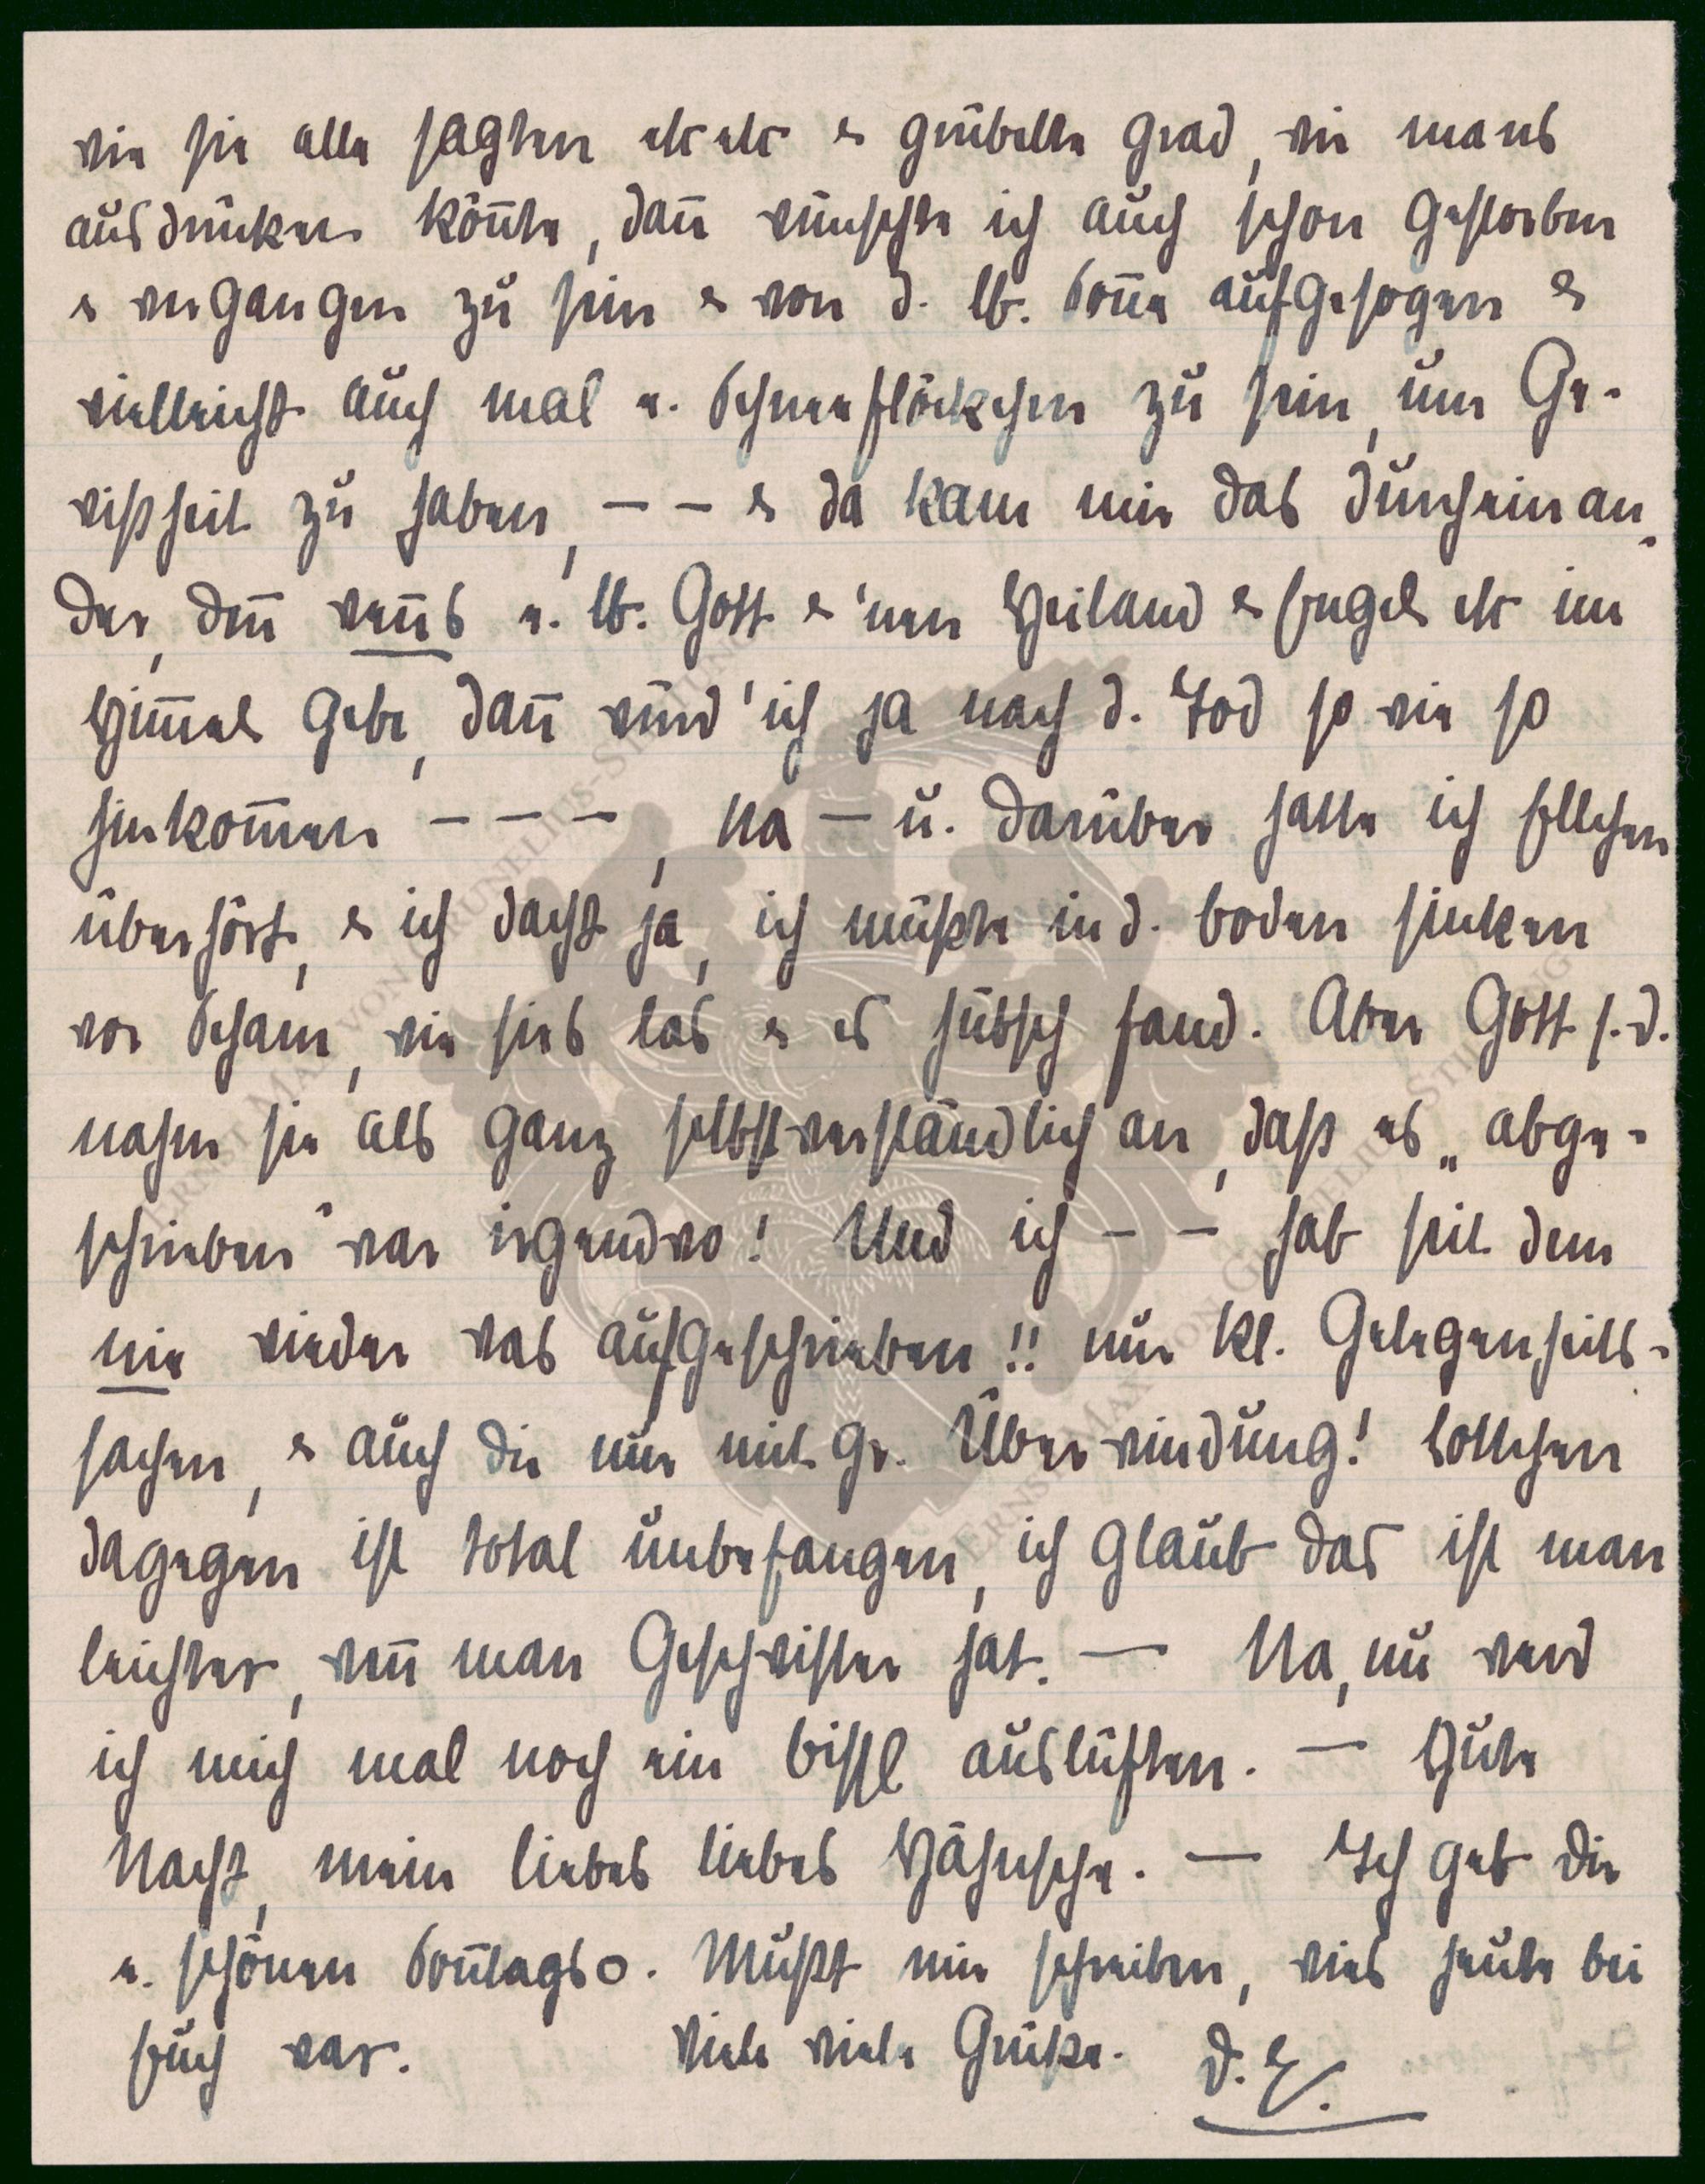 wie sie alle sagten etc etc & grübelte grad, wie mans
ausdrücken kön̄te, dan̄ wünschte ich auch schon gestorben
& vergangen zu sein & von d. lb. Son̄e aufgesogen &
vielleicht auch mal e. Schneeflöckchen zu sein, um Ge-
wißheit zu haben, – – & da kam mir das Durcheinan-
der, den̄ wen̄s e. lb. Gott & 'nen Heiland & Engel etc im
Him̄el gebe, dan̄ würd' ich ja nach d. Tod so wie so
hinkom̄en – – –, Na – u. darüber hatte ich Ellchen
überhört, & ich dacht ja, ich müßte in d. Boden sinken
vor Scham, wie sies las & es hübsch fand. Aber Gott s. d.
nahm sie als ganz selbstverständlich an, daß es „abge-
schrieben" war irgendwo! Und ich – – hab seit dem
nie wieder was aufgeschrieben!! nur kl. Gelegenheits-
sachen, & auch die nur mit gr. Überwindung! Lottchen
dagegen ist total unbefangen, ich glaub das ist man
leichter, wen̄ man Geschwister hat. – Na, nu werd
ich mich mal noch ein bissl auslüften. – Gute
Nacht, mein liebes liebes Hähnsche. – Ich geb Dir
e. schönen Son̄tags o. Mußt mir schreiben, wies heute bei
Euch war. Viele viele Grüße. D. E.